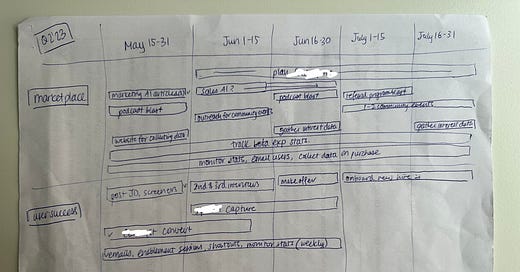 Q2'23
May 15-31
Jun 1-15
Jun 16-30
July 1-15
July 16-31
plan
marketplace
marketing AI
sales AI?
podcast blast
podcast blast
referral program blast
outreach for community events
1-2 community events
website for collecting data
gather interest data
gather interest data
track beta exp stats.
monitor stats, email users, collect data on purchase
post JD, screeners
2nd & 3rd interviews
make offer
onboard new hire
user success
capture
contest
emails, enablement sessions, shoutouts, monitor stats (weekly)